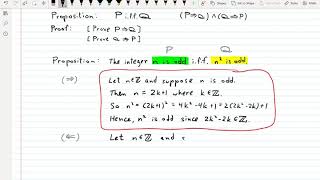 Proposition: P i.f.f. Q (P⇒Q) ∧ (Q⇒P)
Proof: [Prove P⇒Q]
[Prove Q⇒P]
P Q
Proposition: The integer n is odd i.f.f. n² is odd.
(⇒) Let n∈ℤ and suppose n is odd.
Then n = 2k+1 where k∈ℤ.
So n² = (2k+1)² = 4k²-4k+1 = 2(2k²-2k)+1
Hence, n² is odd since 2k²-2k∈ℤ.
(⇐) Let n∈ℤ and